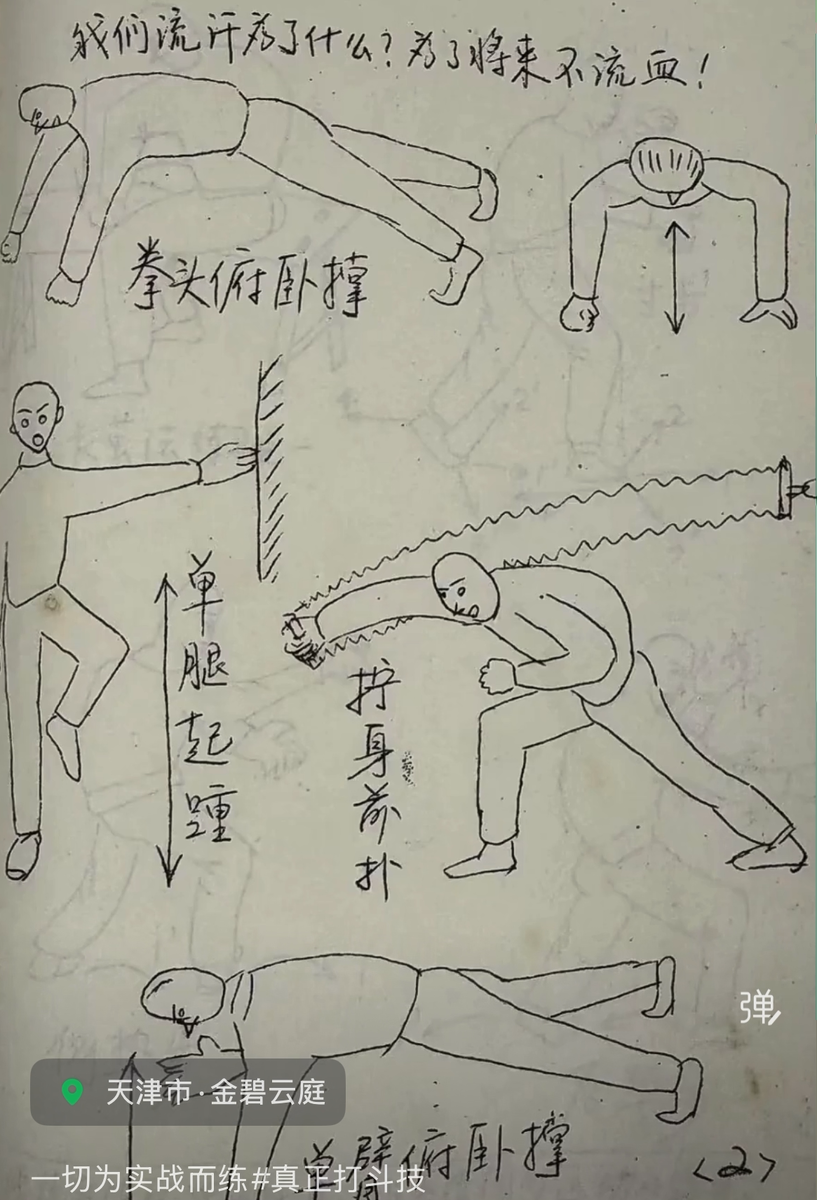 我们流汗为了什么?为了将来不流血!
拳头俯卧撑
单腿起踵
拧身前扑
弹
天津市·金碧云庭
单臂俯卧撑
一切为实战而练#真正打斗技
<2>